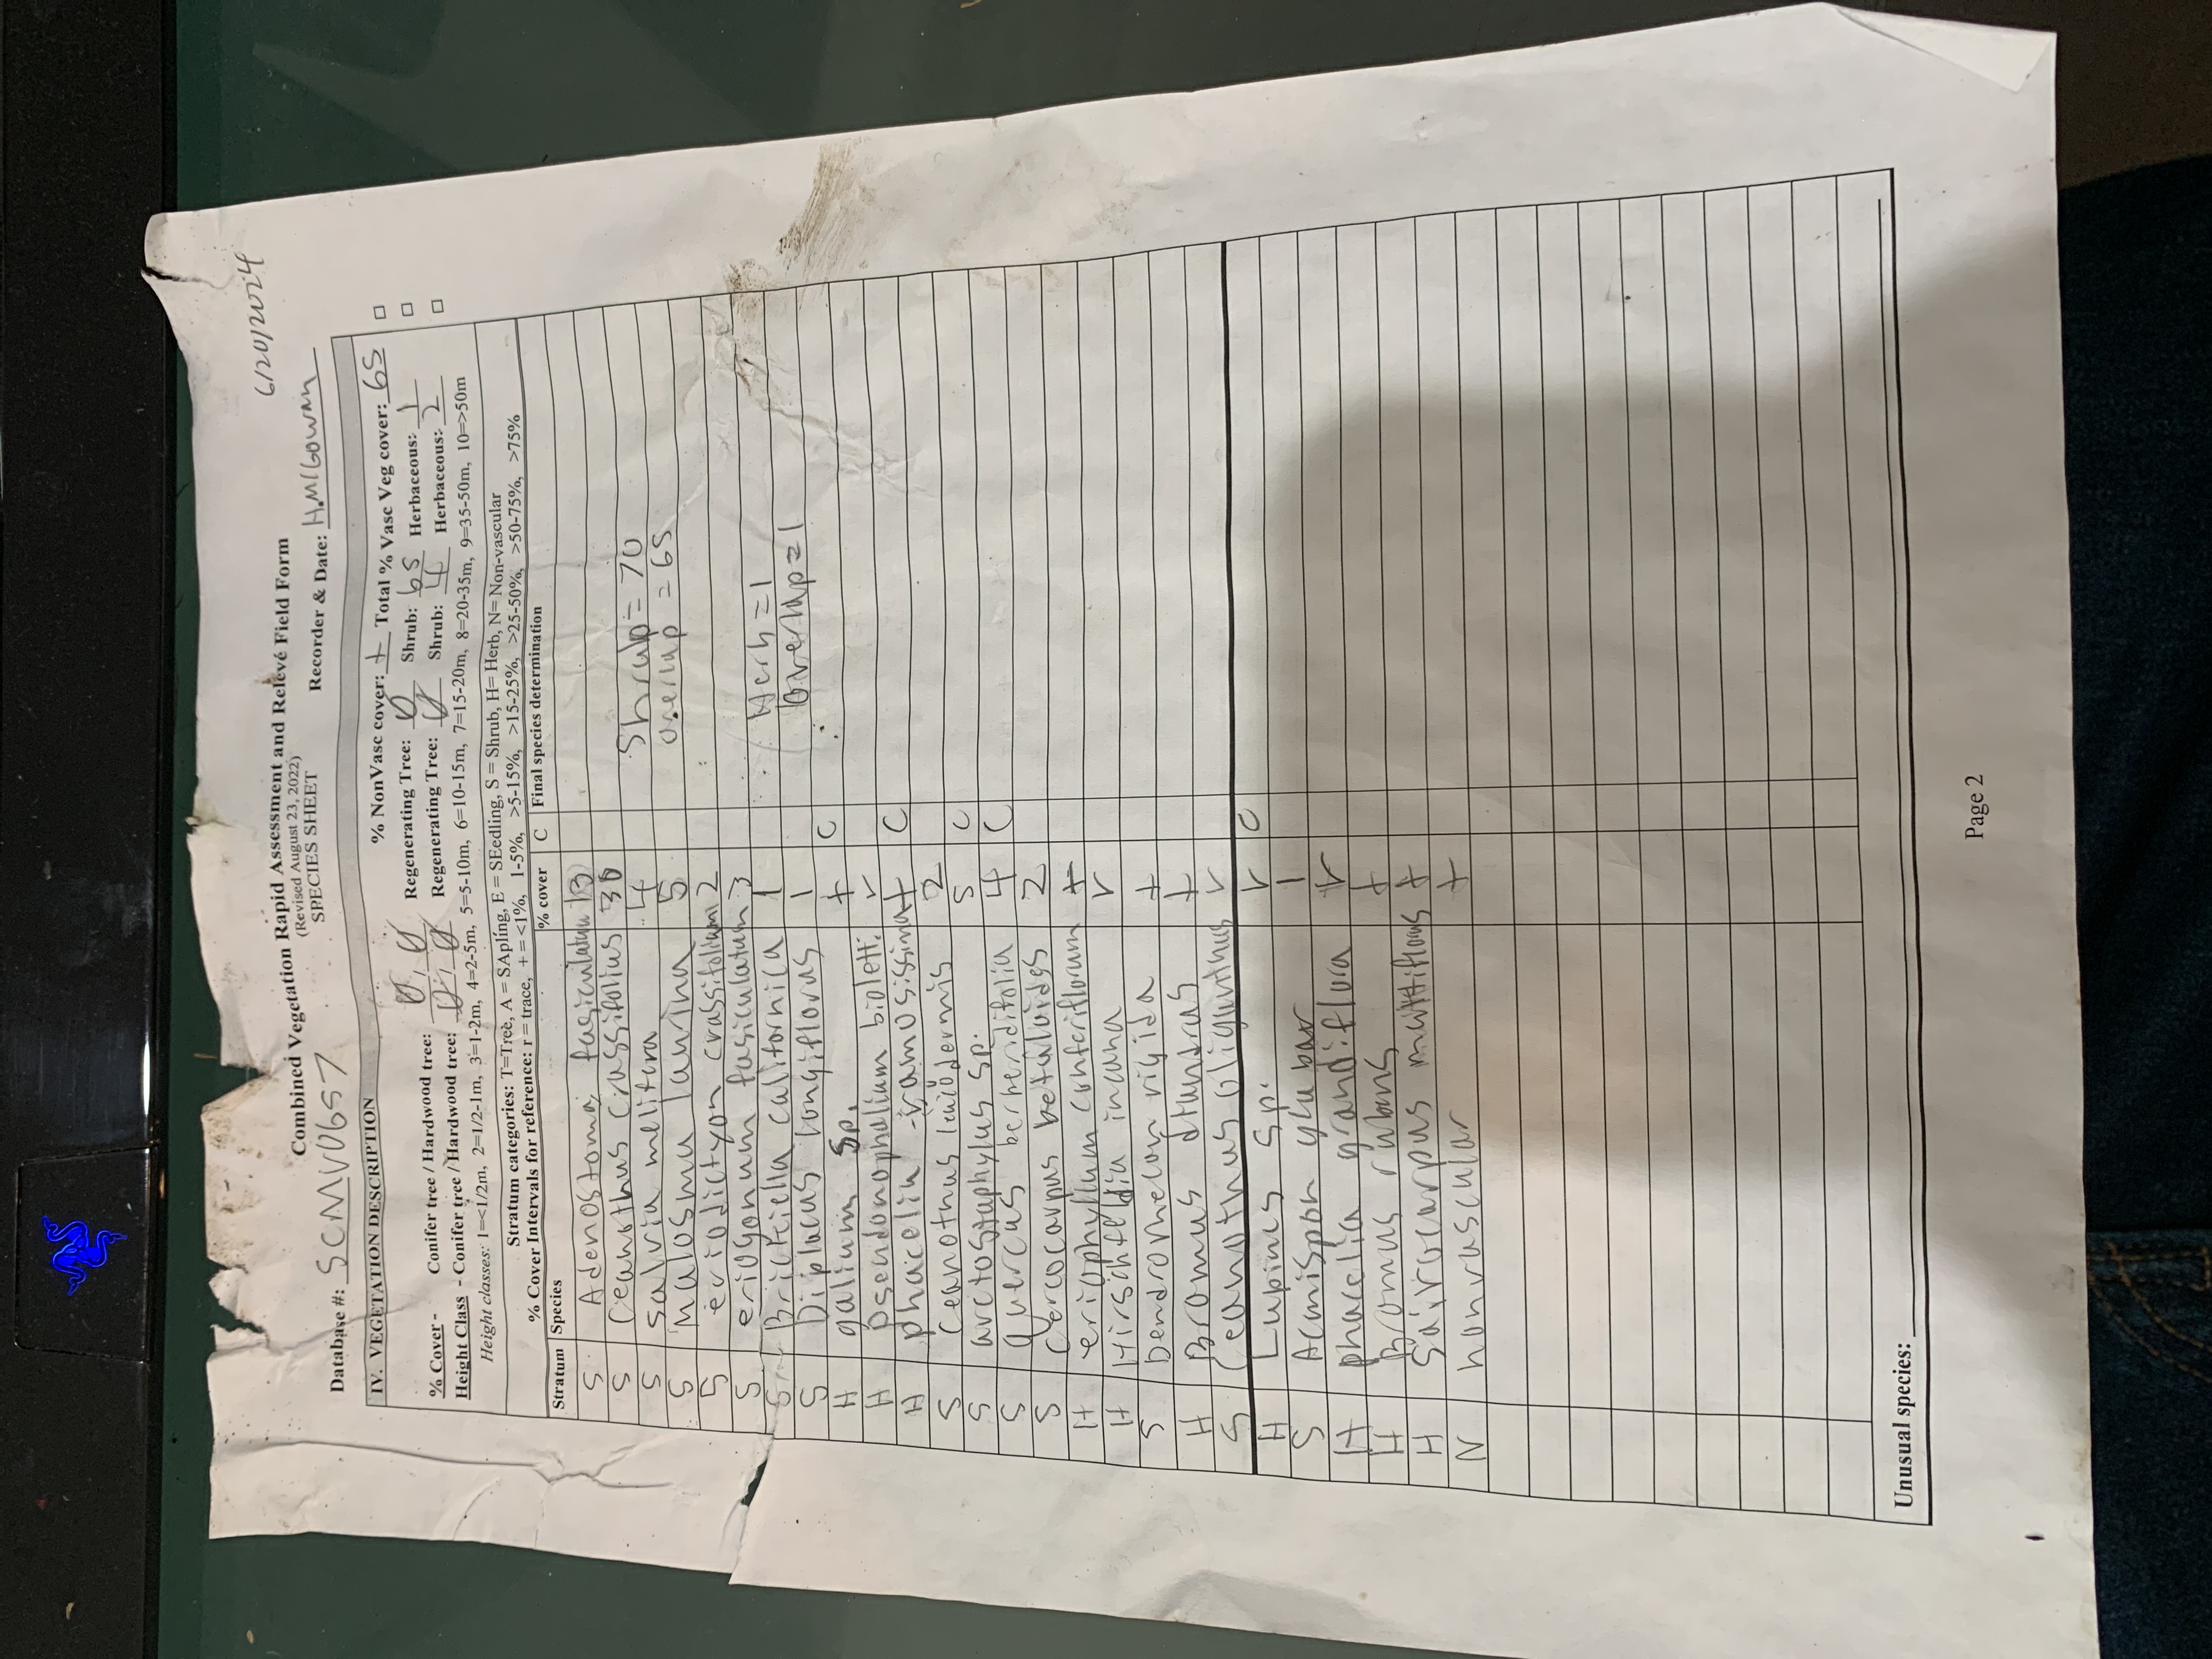 6/20/2024
Combined Vegetation Rapid Assessment and Relevé Field Form
(Revised August 23, 2022)
SPECIES SHEET
Database #: SCMV0657 Recorder & Date: H.McGowan
IV. VEGETATION DESCRIPTION
% NonVasc cover: + Total % Vasc Veg cover: 65
% Cover - Conifer tree / Hardwood tree: Ø / Ø Regenerating Tree: Ø Shrub: 65 Herbaceous: 1
Height Class - Conifer tree / Hardwood tree: Ø / Ø Regenerating Tree: Ø Shrub: 4 Herbaceous: 2
Height classes: 1=<1/2m, 2=1/2-1m, 3=1-2m, 4=2-5m, 5=5-10m, 6=10-15m, 7=15-20m, 8=20-35m, 9=35-50m, 10=>50m
Stratum categories: T=Tree, A = SApling, E = SEedling, S = Shrub, H= Herb, N= Non-vascular
% Cover Intervals for reference: r = trace, + = <1%, 1-5%, >5-15%, >15-25%, >25-50%, >50-75%, >75%
Stratum Species % cover C Final species determination
S Adenostoma fasiculatum 13
S Ceanothus crassifolius 30
S salvia melifera 4 Shrub = 70
S Malosma laurina 5 overlap = 65
S eriodictyon crassifolium 2
S eriogonum fasiculatum 3
S Brickellia californica 1 Herb = 1
S Diplacus longiflorus 1 overlap = 1
H galium sp. + C
H Pseudonophalium bioletti r
H phacelia ramosissima + C
S Ceanothus leucodermis 2
S arctostaphylus sp. 5 C
S Quercus berberidifolia 4 C
S Cercocarpus betuloides 2
H eriophyllum confertiflorum +
H Hirschfeldia incana r
S Dendromecon rigida +
H Bromus diandrus +
S Ceanothus oliganthus r
H Lupinus sp. r C
S Acmispon glabar 1
H phacelia grandiflora r
H Bromus rubens +
H Sairocarpus multiflorus +
N nonvascular +
Unusual species:
Page 2